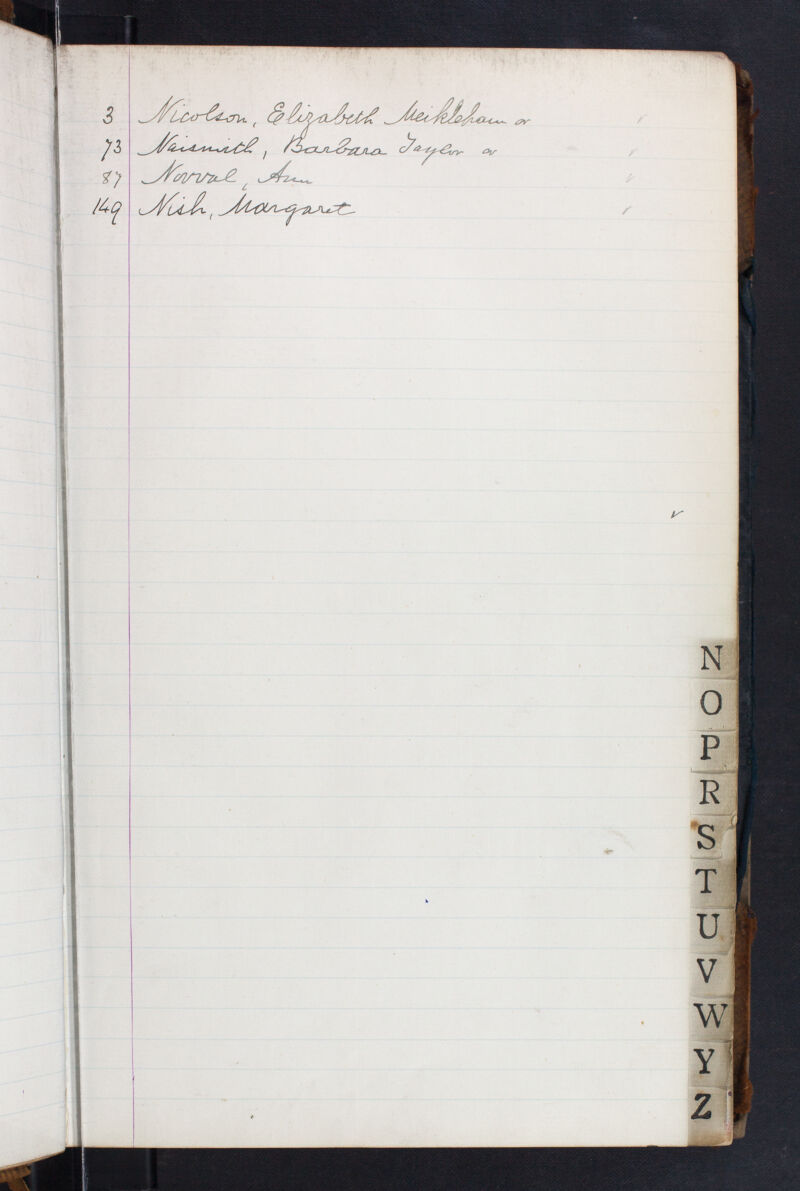 3 Nicolson, Elizabeth Meikleham or ✓
73 Naismith, Barbara Taylor or ✓
87 Norval, Ann ✓
149 Nish, Margaret ✓
✓
N
O
P
R
S
T
U
V
W
Y
Z